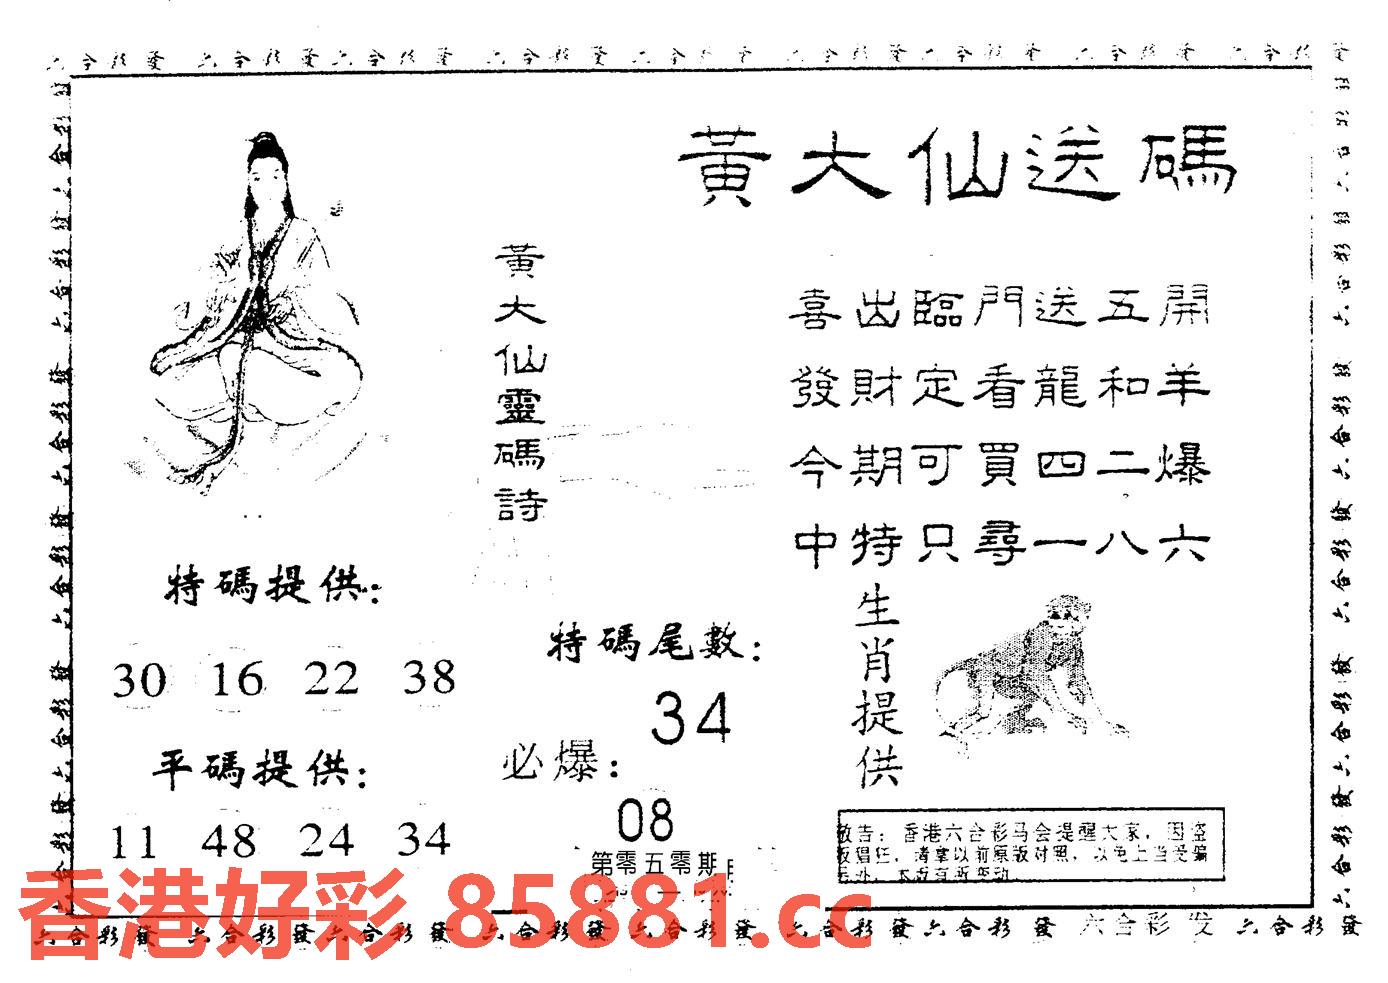 六合彩發 六合彩發 六合彩發 六合彩發 六合彩發 六合彩發 六合彩發 六合彩發 六合彩發
黃大仙送碼
黃大仙靈碼詩
喜出臨門送五開
發財定看龍和羊
今期可買四二爆
中特只尋一八六
特碼提供：
30 16 22 38
平碼提供：
11 48 24 34
特碼尾數：
34
必爆：
08
第零五零期
生肖提供
敬告：香港六合彩马会提醒大家，因盗
版猖狂，请拿以前原版对照，以免上当受骗
另外，本版有新变动
香港好彩 85881.cc
六合彩發 六合彩發 六合彩發 六合彩發 六合彩發 六合彩發 六合彩發 六合彩 发 六合彩發